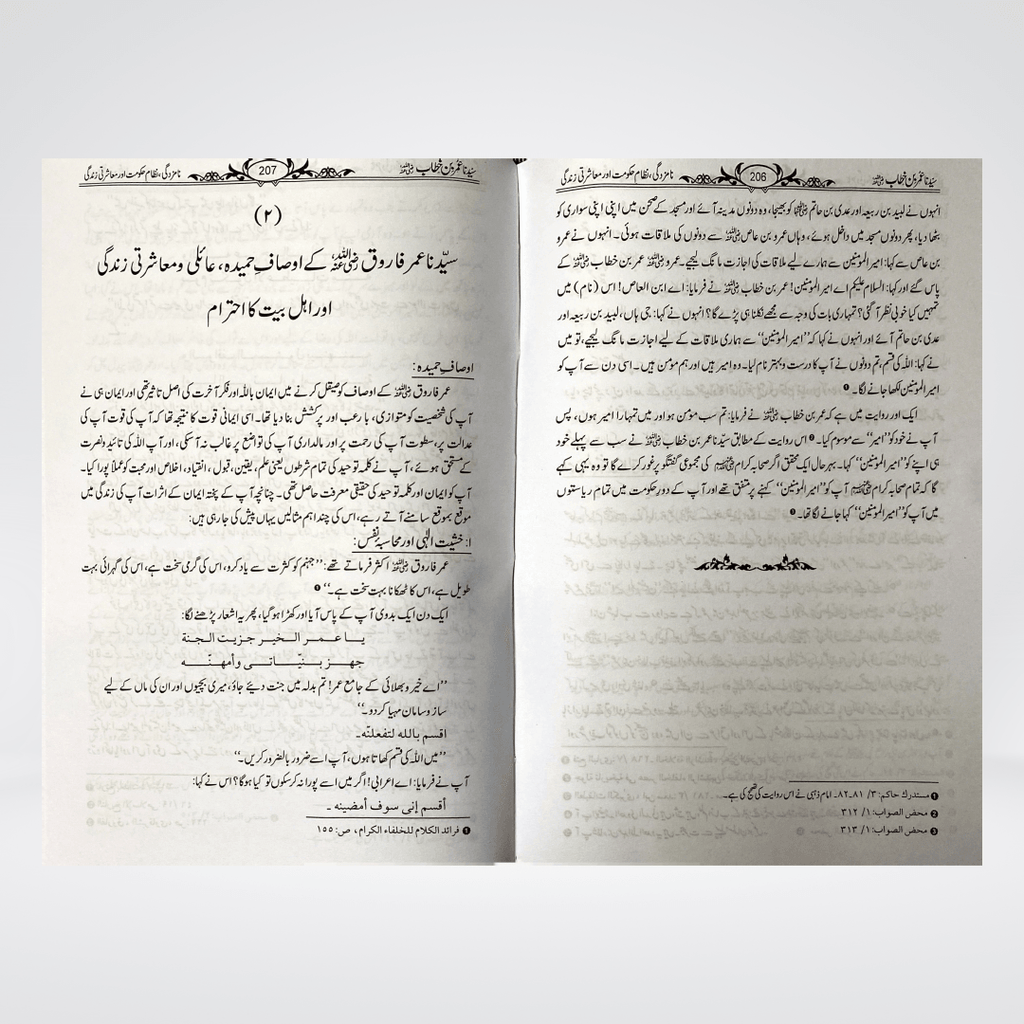 سیّدنا عمر بن خطاب رضی اللہ عنہ 206 نامزدگی، نظام حکومت اور معاشرتی زندگی
انہوں نے لبید بن ربیعہ اور عدی بن حاتم رضی اللہ عنہما کو بھیجا، وہ دونوں مدینہ آئے اور مسجد کے صحن میں اپنی اپنی سواری کو
بٹھا دیا، پھر دونوں مسجد میں داخل ہوئے، وہاں عمرو بن عاص رضی اللہ عنہ سے دونوں کی ملاقات ہوئی۔ انہوں نے عمرو
بن عاص سے کہا: امیر المومنین سے ہمارے لیے ملاقات کی اجازت مانگ لیجیے۔ عمرو رضی اللہ عنہ عمر بن خطاب رضی اللہ عنہ کے
پاس گئے اور کہا: السلام علیکم اے امیر المومنین! عمر بن خطاب رضی اللہ عنہ نے فرمایا: اے ابن العاص! اس (نام) میں
تمہیں کیا خوبی نظر آگئی؟ تمہاری بات کی وجہ سے مجھے نکلنا ہی پڑے گا؟ انہوں نے کہا: جی ہاں، لبید بن ربیعہ اور
عدی بن حاتم آئے اور انہوں نے کہا کہ ’’امیر المومنین‘‘ سے ہماری ملاقات کے لیے اجازت مانگ لیجیے، تو میں
نے کہا: اللہ کی قسم، تم دونوں نے آپ کا درست و بہتر نام لیا۔ وہ امیر ہیں اور ہم مؤمن ہیں۔ اسی دن سے آپ کو
امیر المومنین لکھا جانے لگا۔ ❶
ایک اور روایت میں ہے کہ عمر بن خطاب رضی اللہ عنہ نے فرمایا: تم سب مؤمن ہو اور میں تمہارا امیر ہوں، پس
آپ نے خود کو ’’امیر‘‘ سے موسوم کیا۔ ❷ اس روایت کے مطابق سیّدنا عمر بن خطاب رضی اللہ عنہ نے سب سے پہلے خود
ہی اپنے کو ’’امیر المومنین‘‘ کہا۔ بہرحال ایک محقق اگر صحابہ کرام رضی اللہ عنہم کی مجموعی گفتگو پر غور کرے گا تو وہ یہی کہے
گا کہ تمام صحابہ کرام رضی اللہ عنہم آپ کو ’’امیر المومنین‘‘ کہنے پر متفق تھے اور آپ کے دور حکومت میں تمام ریاستوں
میں آپ کو ’’امیر المومنین‘‘ کہا جانے لگا تھا۔ ❸
❶ مستدرك حاكم: ۳/ ۸۱۔۸۲۔ امام ذہبی نے اس روایت کی تصحیح کی ہے۔
❷ محض الصواب: ۱/ ۳۱۲
❸ محض الصواب: ۱/ ۳۱۳
سیّدنا عمر بن خطاب رضی اللہ عنہ 207 نامزدگی، نظام حکومت اور معاشرتی زندگی
(۲)
سیّدنا عمر فاروق رضی اللہ عنہ کے اوصافِ حمیدہ، عائلی و معاشرتی زندگی
اور اہل بیت کا احترام
اوصافِ حمیدہ:
عمر فاروق رضی اللہ عنہ کے اوصاف کو صیقل کرنے میں ایمان باللہ اور فکر آخرت کی اصل تاثیر تھی اور ایمان ہی نے
آپ کی شخصیت کو متوازی، بارعب اور پرکشش بنا دیا تھا۔ اسی ایمانی قوت کا نتیجہ تھا کہ آپ کی قوت آپ کی
عدالت پر، سطوت آپ کی رحمت پر اور مالداری آپ کی تواضع پر غالب نہ آسکی، اور آپ اللہ کی تائید و نصرت
کے مستحق ہوئے، آپ نے کلمہ توحید کی تمام شرطوں یعنی علم، یقین، قبول، انقیاد، اخلاص اور محبت کو عملاً پورا کیا۔
آپ کو ایمان اور کلمہ توحید کی حقیقی معرفت حاصل تھی۔ چنانچہ آپ کے پختہ ایمان کے اثرات آپ کی زندگی میں
موقع بموقع سامنے آتے رہے، اس کی چند اہم مثالیں یہاں پیش کی جا رہی ہیں:
۱: خشیّت الٰہی اور محاسبہ نفس:
عمر فاروق رضی اللہ عنہ اکثر فرماتے تھے: ’’جہنم کو کثرت سے یاد کرو، اس کی گرمی سخت ہے، اس کی گہرائی بہت
طویل ہے، اس کا ٹھکانا بہت سخت ہے۔‘‘ ❶
ایک دن ایک بدوی آپ کے پاس آیا اور کھڑا ہوگیا، پھر یہ اشعار پڑھنے لگا:
يا عمر الخير جزيت الجنة
جهز بنيّاتى وأمهنّه
’’اے خیر و بھلائی کے جامع عمر! تم بدلہ میں جنت دیئے جاؤ، میری بچیوں اور ان کی ماں کے لیے
ساز و سامان مہیا کردو۔‘‘
اقسم بالله لتفعلنّه۔
’’میں اللہ کی قسم کھاتا ہوں، آپ اسے ضرور بالضرور کریں۔‘‘
آپ نے فرمایا: اے اعرابی! اگر میں اسے پورا نہ کرسکوں تو کیا ہوگا؟ اس نے کہا:
أقسم إنى سوف أمضينه ۔
❶ فرائد الكلام للخلفاء الكرام، ص: ۱۵۵